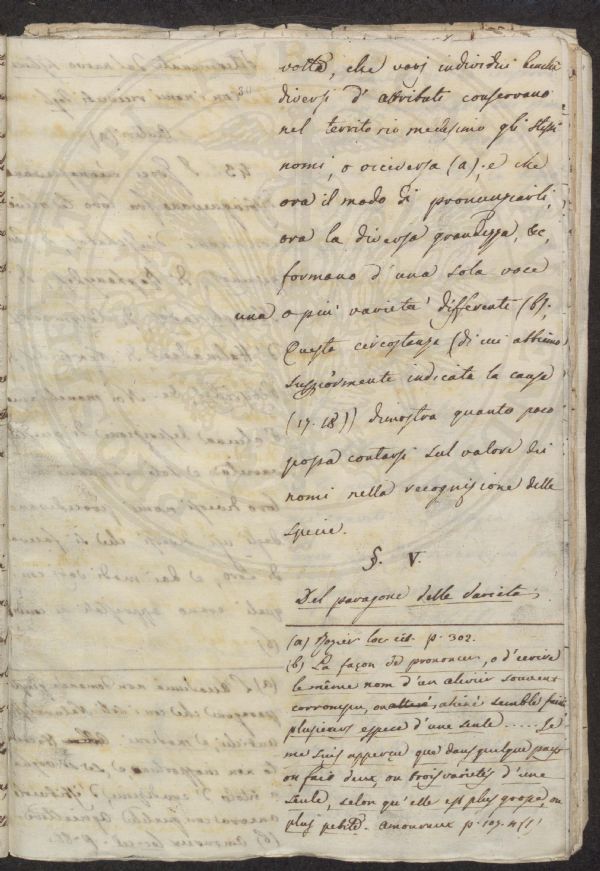 volte, che varj individui benchè
diversi d'attributi conservano
nel territorio medesimo gli stessi
nomi, o viceversa (a); e che
ora il modo di pronunziarli,
ora la diversa grandezza, &c,
formano d'una sola voce
una o più varietà differenti (b).
Queste circostanze (di cui abbiamo
superiormente indicata la causa
(17. 18)) dimostra quanto poco
possa contarsi sul valore dei
nomi nella recognizione delle
specie.
§. V.
Del paragone delle Varietà
(a) Rozier loc. cit. p. 302.
(b) La façon de prononcer, o d'ecrire
le même nom d'un olivier souvent
corrompu, ou altéré, a semble faire
plusieurs espece d'une seule ...... Je
me suis apperçu que dans quelque pays
on fait deux, ou trois varietés d'une
seule, selon qu'elle est plus grosse, ou
plus petite. Amoureux p. 107.